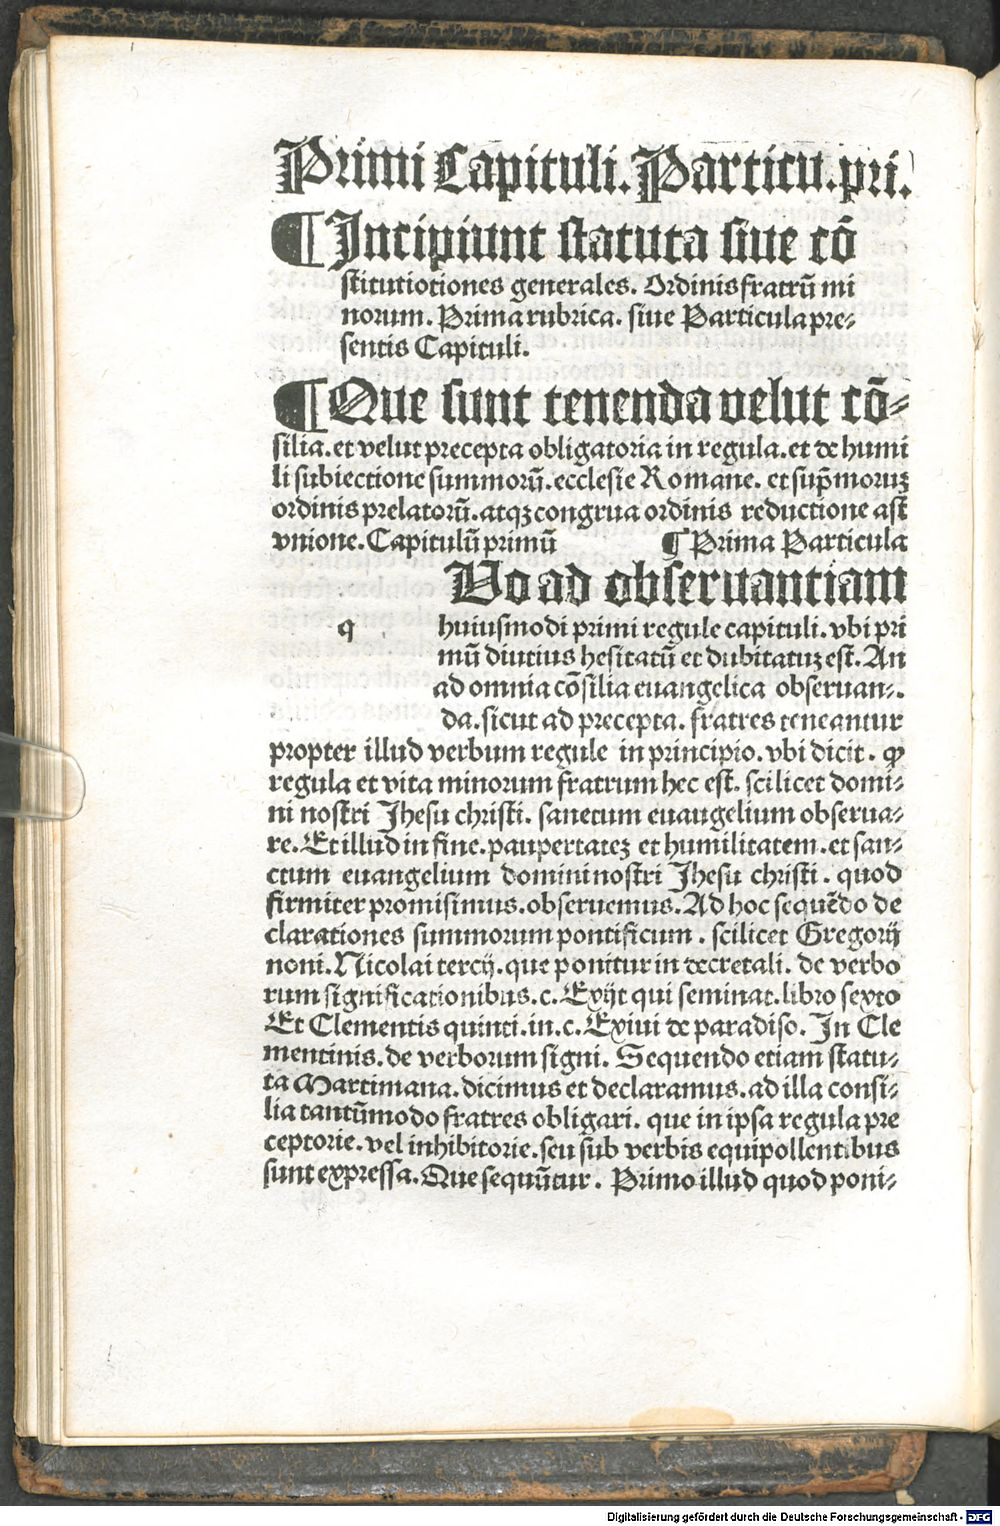 Primi Capituli. Particu. pri.
¶ Incipiunt statuta siue cō
stitutiotiones generales. Ordinis fratrū mi
norum. Prima rubrica. siue Particula pre-
sentis Capituli.
¶ Que sunt tenenda velut cō-
silia. et velut precepta obligatoria in regula. et de humi
li subiectione summorū. ecclesie Romane. et sup̄moruꝫ
ordinis prelatorū. atqꝫ congrua ordinis reductione ast̄
vnione. Capitulū primū ¶ Prima Particula
Uo ad obseruantiam
q huiusmodi primi regule capituli. vbi pri
mū diutius hesitatū et dubitatuꝫ est. An
ad omnia cōsilia euangelica obseruan-.
da. sicut ad precepta. fratres teneantur
propter illud verbum regule in principio. vbi dicit. ꝙ
regula et vita minorum fratrum hec est. scilicet domi-
ni nostri Jhesu christi. sanctum euangelium obserua-
re. Et illud in fine. paupertateꝫ et humilitatem. et san-
ctum euangelium domini nostri Jhesu christi. quod
firmiter promisimus. obseruemus. Ad hoc sequēdo de
clarationes summorum pontificum. scilicet Gregorij
noni. Nicolai tercij. que ponitur in decretali. de verbo
rum significationibus. c. Exijt qui seminat. libro sexto
Et Clementis quinti. in. c. Exiui de paradiso. In Cle
mentinis. de verborum signi. Sequendo etiam statu-
ta Martimana. dicimus et declaramus. ad illa consi-
lia tantūmodo fratres obligari. que in ipsa regula pre
ceptorie. vel inhibitorie. seu sub verbis equipollentibus
sunt expressa. Que sequūtur. Primo illud quod poni-
Digitalisierung gefördert durch die Deutsche Forschungsgemeinschaft - DFG